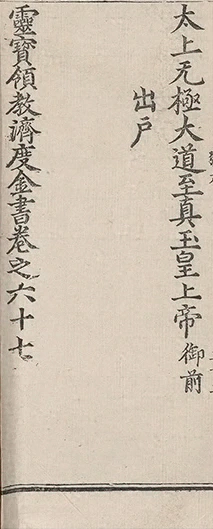 太上无極大道至真玉皇上帝御前
出戸
靈寶領教濟度金書卷之六十七